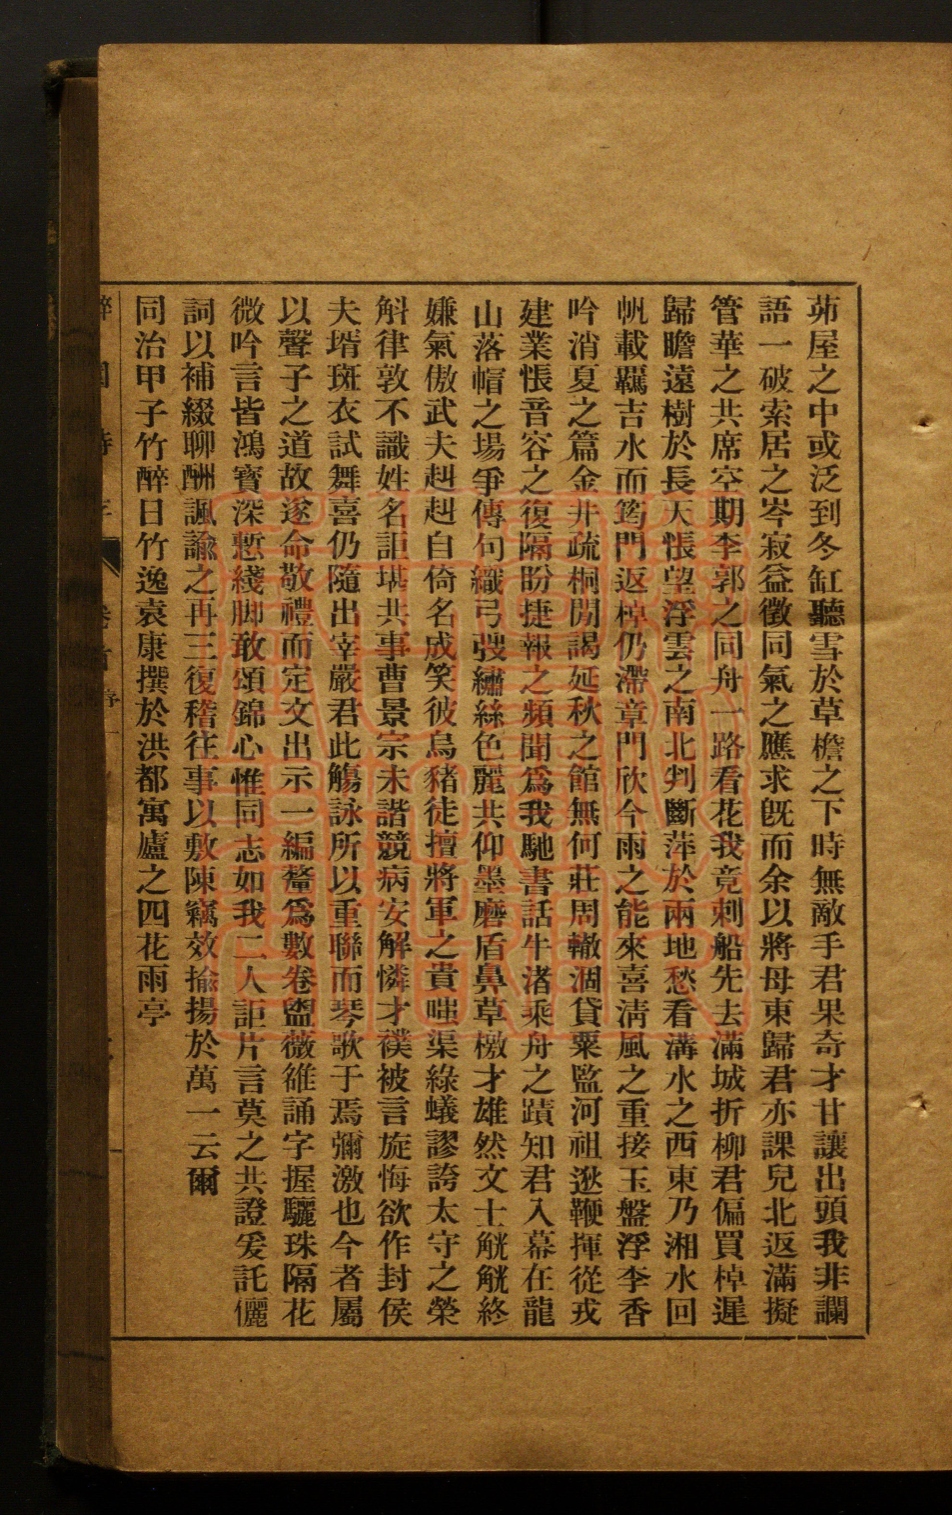 茆屋之中或泛到冬缸聽雪於草檐之下時無敵手君果奇才甘讓出頭我非讕
語一破索居之岑寂益徵同氣之應求旣而余以將母東歸君亦課兒北返滿擬
管華之共席空期李郭之同舟一路看花我竟刺船先去滿城折柳君偏買棹遲
歸瞻遠樹於長天悵望浮雲之南北判斷萍於兩地愁看溝水之西東乃湘水回
帆載羈吉水而筠門返棹仍滯章門欣今雨之能來喜淸風之重接玉盤浮李香
吟消夏之篇金井疏桐閒謁延秋之館無何莊周轍涸貸粟監河祖逖鞭揮從戎
建業悵音容之復隔盼捷報之頻聞爲我馳書話牛渚乘舟之蹟知君入幕在龍
山落帽之場爭傳句織弓弢繡絲色麗共仰墨磨盾鼻草檄才雄然文士觥觥終
嫌氣傲武夫赳赳自倚名成笑彼烏豬徒擅將軍之貴嗤渠綠蟻謬誇太守之榮
斛律敦不識姓名詎堪共事曹景宗未諧競病安解憐才襆被言旋悔欲作封侯
夫壻斑衣試舞喜仍隨出宰嚴君此觴詠所以重聯而琴歌于焉彌激也今者屬
以聲子之道故遂命敬禮而定文出示一編釐爲數卷盥薇雒誦字握驪珠隔花
微吟言皆鴻寶深慙綫脚敢頌錦心惟同志如我二人詎片言莫之共證爰託儷
詞以補綴聊酬諷諭之再三復稽往事以敷陳竊效揄揚於萬一云爾
同治甲子竹醉日竹逸袁康撰於洪都寓廬之四花雨亭